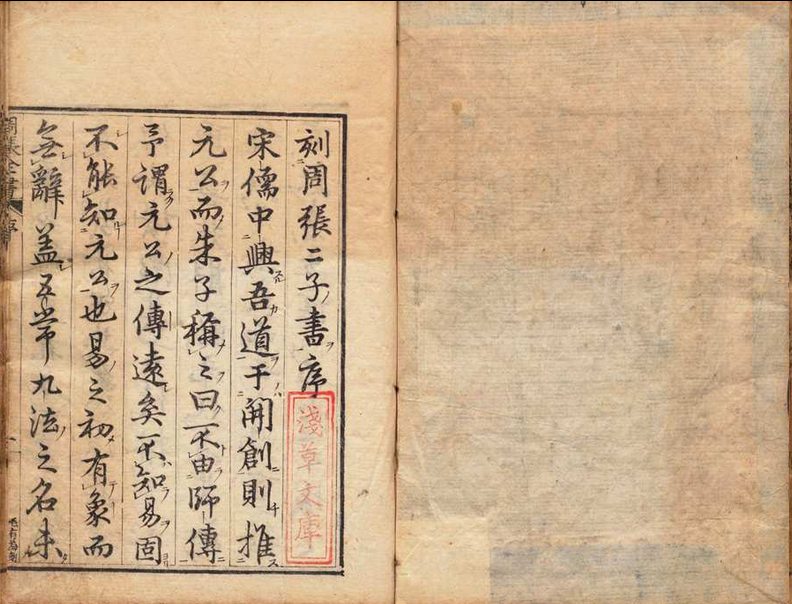 刻周張二子書序
淺草文庫
宋儒中興吾道于開創則推
元公而朱子稱之曰不由師傳
予謂元公之傳遠矣不知易固
不能知元公也易之初有象而
無辭蓋五常九法之名未
周張全書
序